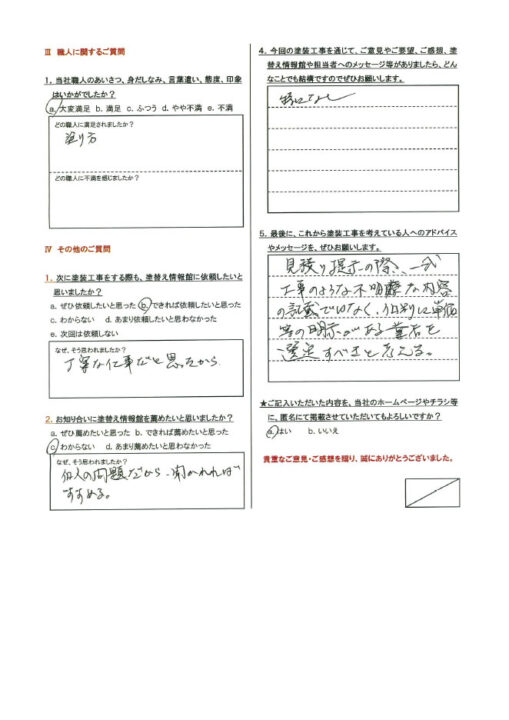 Ⅲ 職人に関するご質問
1. 当社職人のあいさつ、身だしなみ、言葉遣い、態度、印象
はいかがでしたか？
a. 大変満足 b. 満足 c. ふつう d. やや不満 e. 不満
どの職人に満足されましたか？
塗り方
どの職人に不満を感じましたか？
Ⅳ その他のご質問
1. 次に塗装工事をする際も、塗替え情報館に依頼したいと
思いましたか？
a. ぜひ依頼したいと思った b. できれば依頼したいと思った
c. わからない d. あまり依頼したいと思わなかった
e. 次回は依頼しない
なぜ、そう思われましたか？
丁寧な仕事だと思ったから
2. お知り合いに塗替え情報館を薦めたいと思いましたか？
a. ぜひ薦めたいと思った b. できれば薦めたいと思った
c. わからない d. あまり薦めたいと思わなかった
なぜ、そう思われましたか？
個人の問題だから 聞かれれば
すすめる。
4. 今回の塗装工事を通じて、ご意見やご要望、ご感想、塗
替え情報館や担当者へのメッセージ等がありましたら、どん
なことでも結構ですのでぜひお願いします。
特になし
5. 最後に、これから塗装工事を考えている人へのアドバイス
やメッセージを、ぜひお願いします。
見積り提示の際、一式
工事のような不明瞭な内容
の記載ではなく、個別に単価
等の明示がある業者を
選定すべきと考える。
★ご記入いただいた内容を、当社のホームページやチラシ等
に、匿名にて掲載させていただいてもよろしいですか？
a. はい b. いいえ
貴重なご意見・ご感想を賜り、誠にありがとうございました。